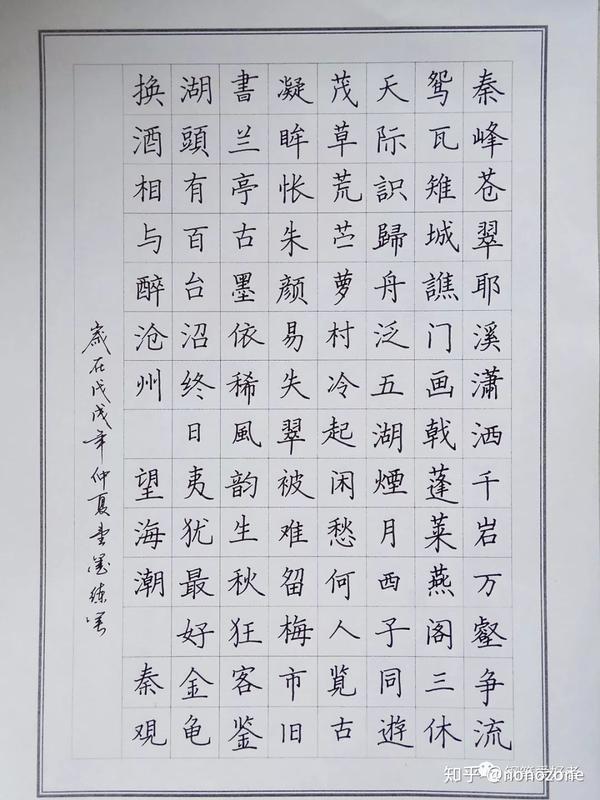 秦峰苍翠耶溪潇洒千岩万壑争流
鸳瓦雉城譙门画戟蓬莱燕阁三休
天际識歸舟泛五湖煙月西子同遊
茂草荒苎萝村冷起闲愁何人览古
凝眸怅朱颜易失翠被难留梅市旧
書兰亭古墨依稀風韵生秋狂客鉴
湖頭有百台沼终日夷犹最好金龟
换酒相与醉沧州 望海潮 秦观
歲在戊戌年仲夏墨練笔
知乎 @nonozone